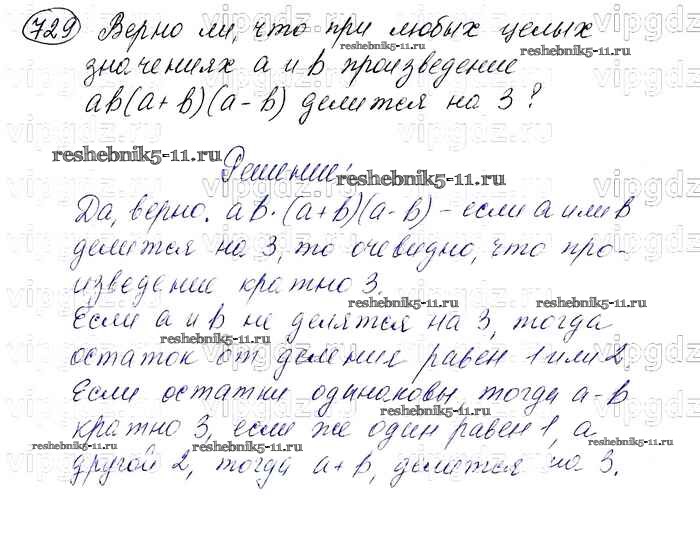 729 Верно ли, что при любых целых
reshebnik5-11.ru
значениях a и b произведение
ab(a+b)(a-b) делится на 3?
reshebnik5-11.ru
Решение:
reshebnik5-11.ru
Да, верно. ab·(a+b)(a-b) - если a или b
делится на 3, то очевидно, что про-
изведение кратно 3.
reshebnik5-11.ru reshebnik5-11.ru
Если a и b не делятся на 3, тогда
reshebnik5-11.ru
остаток от деления равен 1 или 2.
Если остатки одинаковы, тогда a-b
reshebnik5-11.ru
кратно 3, если же один равен 1, а
reshebnik5-11.ru reshebnik5-11.ru
другой 2, тогда a+b, делится на 3.